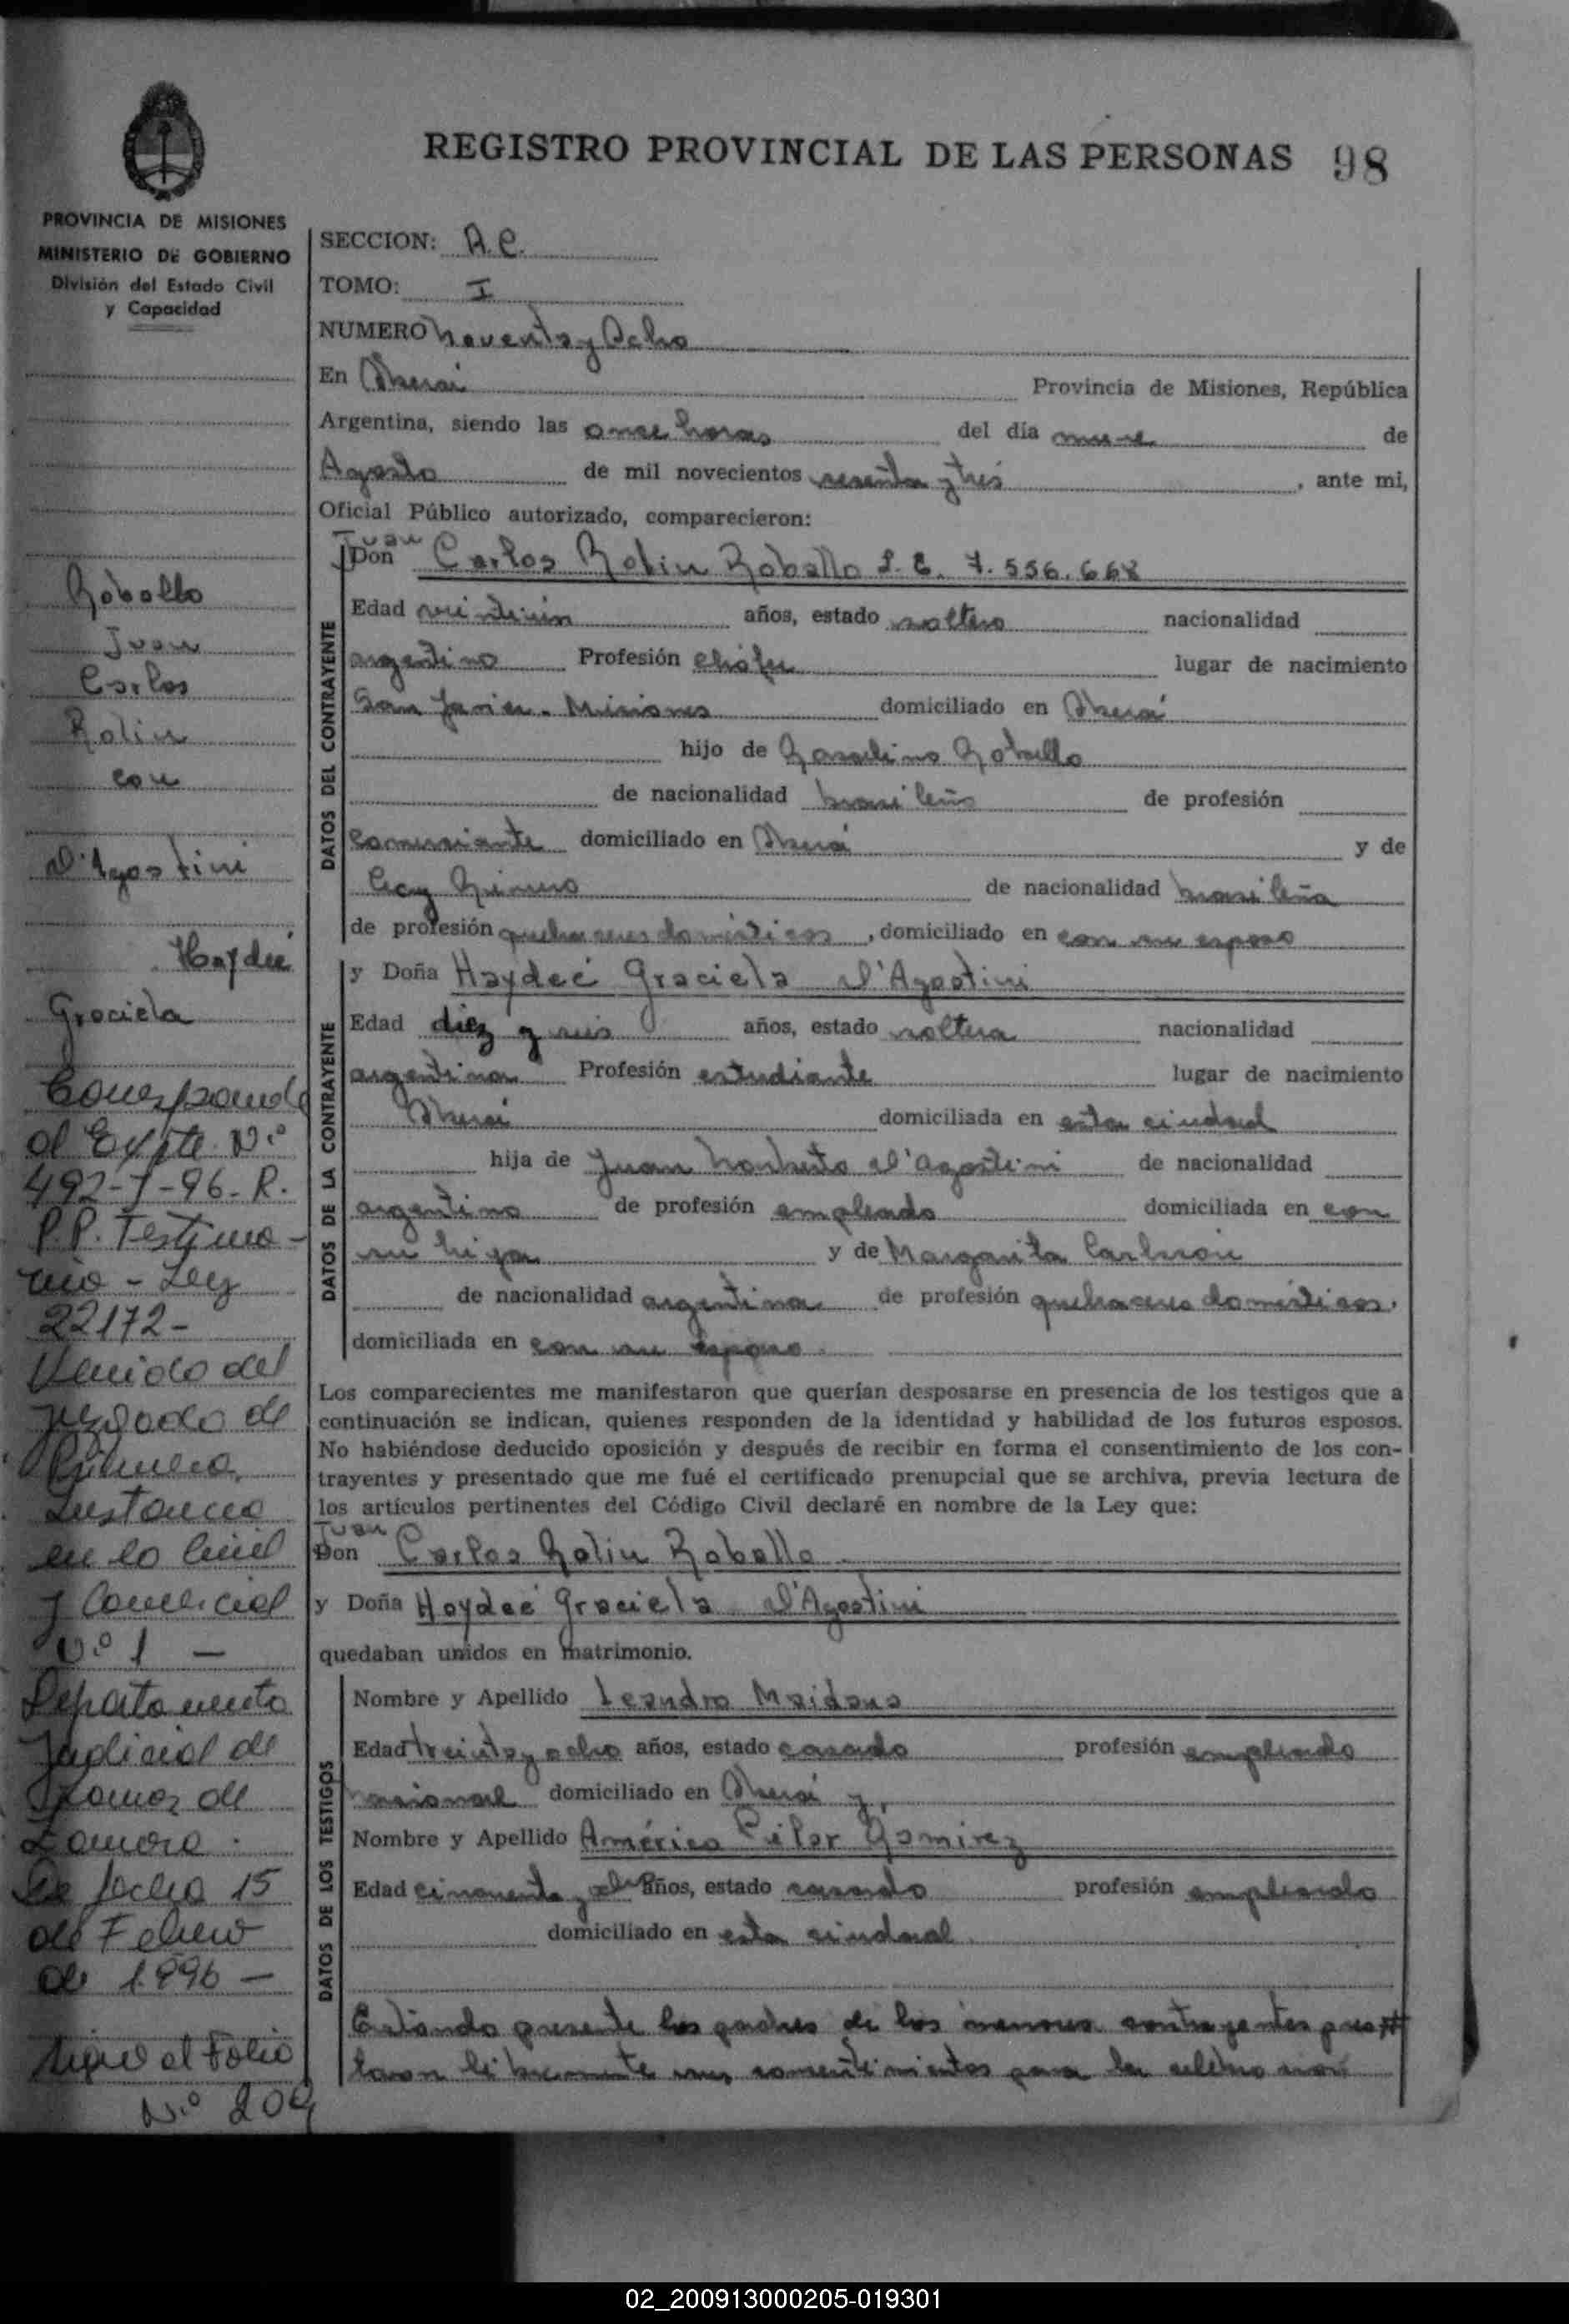 REGISTRO PROVINCIAL DE LAS PERSONAS 98
PROVINCIA DE MISIONES
MINISTERIO DE GOBIERNO
División del Estado Civil
y Capacidad
SECCION: A.C.
TOMO: I
NUMERO Noventa y Ocho
En Oberá Provincia de Misiones, República
Argentina, siendo las once horas del día nueve de
Agosto de mil novecientos sesenta y tres, ante mi,
Oficial Público autorizado, comparecieron:
Juan
Don Carlos Rolin Roballo L. E. 7.556.668
DATOS DEL CONTRAYENTE
Edad veintiún años, estado soltero nacionalidad
argentino Profesión chófer lugar de nacimiento
San Javier - Misiones domiciliado en Oberá
hijo de Roballo
de nacionalidad brasileño de profesión
comerciante domiciliado en Oberá y de
de nacionalidad brasileña
de profesión quehaceres domésticos, domiciliado en con su esposo
y Doña Haydeé Graciela d'Agostini
DATOS DE LA CONTRAYENTE
Edad diez y seis años, estado soltera nacionalidad
argentina Profesión estudiante lugar de nacimiento
Oberá domiciliada en esta ciudad
hija de Juan Norberto d'Agostini de nacionalidad
argentino de profesión empleado domiciliada en con
su hija y de Margarita Carlsson
de nacionalidad argentina de profesión quehaceres domésticos.
domiciliada en con su esposo.
Los comparecientes me manifestaron que querían desposarse en presencia de los testigos que a
continuación se indican, quienes responden de la identidad y habilidad de los futuros esposos.
No habiéndose deducido oposición y después de recibir en forma el consentimiento de los con-
trayentes y presentado que me fué el certificado prenupcial que se archiva, previa lectura de
los artículos pertinentes del Código Civil declaré en nombre de la Ley que:
Juan
Don Carlos Rolin Roballo
y Doña Haydeé Graciela d'Agostini
quedaban unidos en matrimonio.
DATOS DE LOS TESTIGOS
Nombre y Apellido Leandro Maidana
Edad treinta y ocho años, estado casado profesión empleado
nacional domiciliado en Oberá y,
Nombre y Apellido Américo Pilar Gomirez
Edad cincuenta y años, estado casado profesión empleado
domiciliado en esta ciudad
Estando presente los padres de los menores contrayentes pres
taron libremente sus consentimientos para la celebración
Roballo
Juan
Carlos
Rolin
con
d'Agostini
Haydeé
Graciela
Corresponde
al Expte. Nº
492-J-96-R.
P.P. Testimo-
nio - Ley
22172-
Venido del
Juzgado de
Primera
Instancia
en lo Civil
y Comercial
Nº 1 -
Departamento
Judicial de
Lomas de
Zamora.
De fecha 15
de Febrero
de 1.996 -
Sigue al Folio
Nº 209
02_200913000205-019301